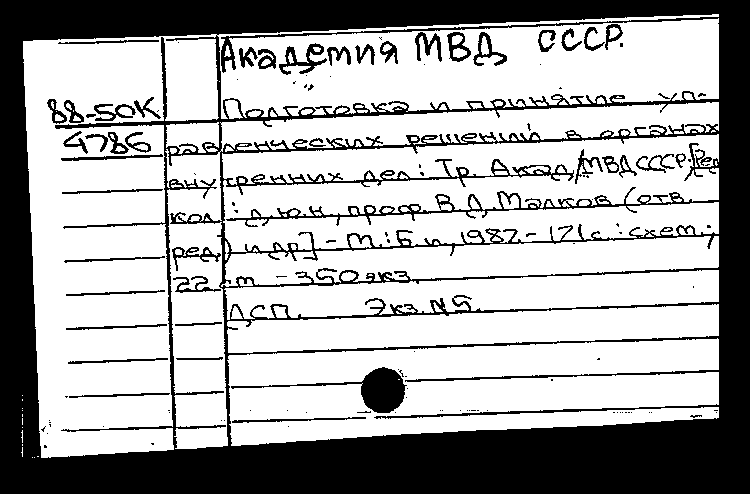 Академия МВД СССР.
88-50К Подготовка и принятие уп-
4786 равленческих решений в органах
внутренних дел: Тр. Акад/МВД СССР;[Ред
кол.: д.ю.н, проф. В.Д. Малков (отв.
ред.) и др] - М.: Б и, 1987. - 171 с.: схем.;
22 см - 350 экз.
ДСП. Экз. N5.